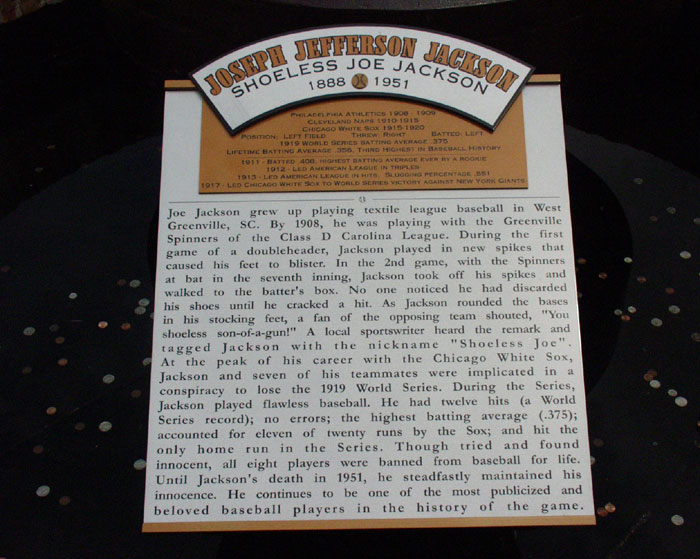 JOSEPH JEFFERSON JACKSON
SHOELESS JOE JACKSON
1888 1951
PHILADELPHIA ATHLETICS 1908 - 1909
CLEVELAND NAPS 1910-1915
CHICAGO WHITE SOX 1915-1920
POSITION: LEFT FIELD THREW: RIGHT BATTED: LEFT
1919 WORLD SERIES BATTING AVERAGE .375
LIFETIME BATTING AVERAGE .356, THIRD HIGHEST IN BASEBALL HISTORY
1911 - BATTED .408, HIGHEST BATTING AVERAGE EVER BY A ROOKIE
1912 - LED AMERICAN LEAGUE IN TRIPLES
1913 - LED AMERICAN LEAGUE IN HITS, SLUGGING PERCENTAGE .551
1917 - LED CHICAGO WHITE SOX TO WORLD SERIES VICTORY AGAINST NEW YORK GIANTS
Joe Jackson grew up playing textile league baseball in West
Greenville, SC. By 1908, he was playing with the Greenville
Spinners of the Class D Carolina League. During the first
game of a doubleheader, Jackson played in new spikes that
caused his feet to blister. In the 2nd game, with the Spinners
at bat in the seventh inning, Jackson took off his spikes and
walked to the batter's box. No one noticed he had discarded
his shoes until he cracked a hit. As Jackson rounded the bases
in his stocking feet, a fan of the opposing team shouted, "You
shoeless son-of-a-gun!" A local sportswriter heard the remark and
tagged Jackson with the nickname "Shoeless Joe".
At the peak of his career with the Chicago White Sox,
Jackson and seven of his teammates were implicated in a
conspiracy to lose the 1919 World Series. During the Series,
Jackson played flawless baseball. He had twelve hits (a World
Series record); no errors; the highest batting average (.375);
accounted for eleven of twenty runs by the Sox; and hit the
only home run in the Series. Though tried and found
innocent, all eight players were banned from baseball for life.
Until Jackson's death in 1951, he steadfastly maintained his
innocence. He continues to be one of the most publicized and
beloved baseball players in the history of the game.